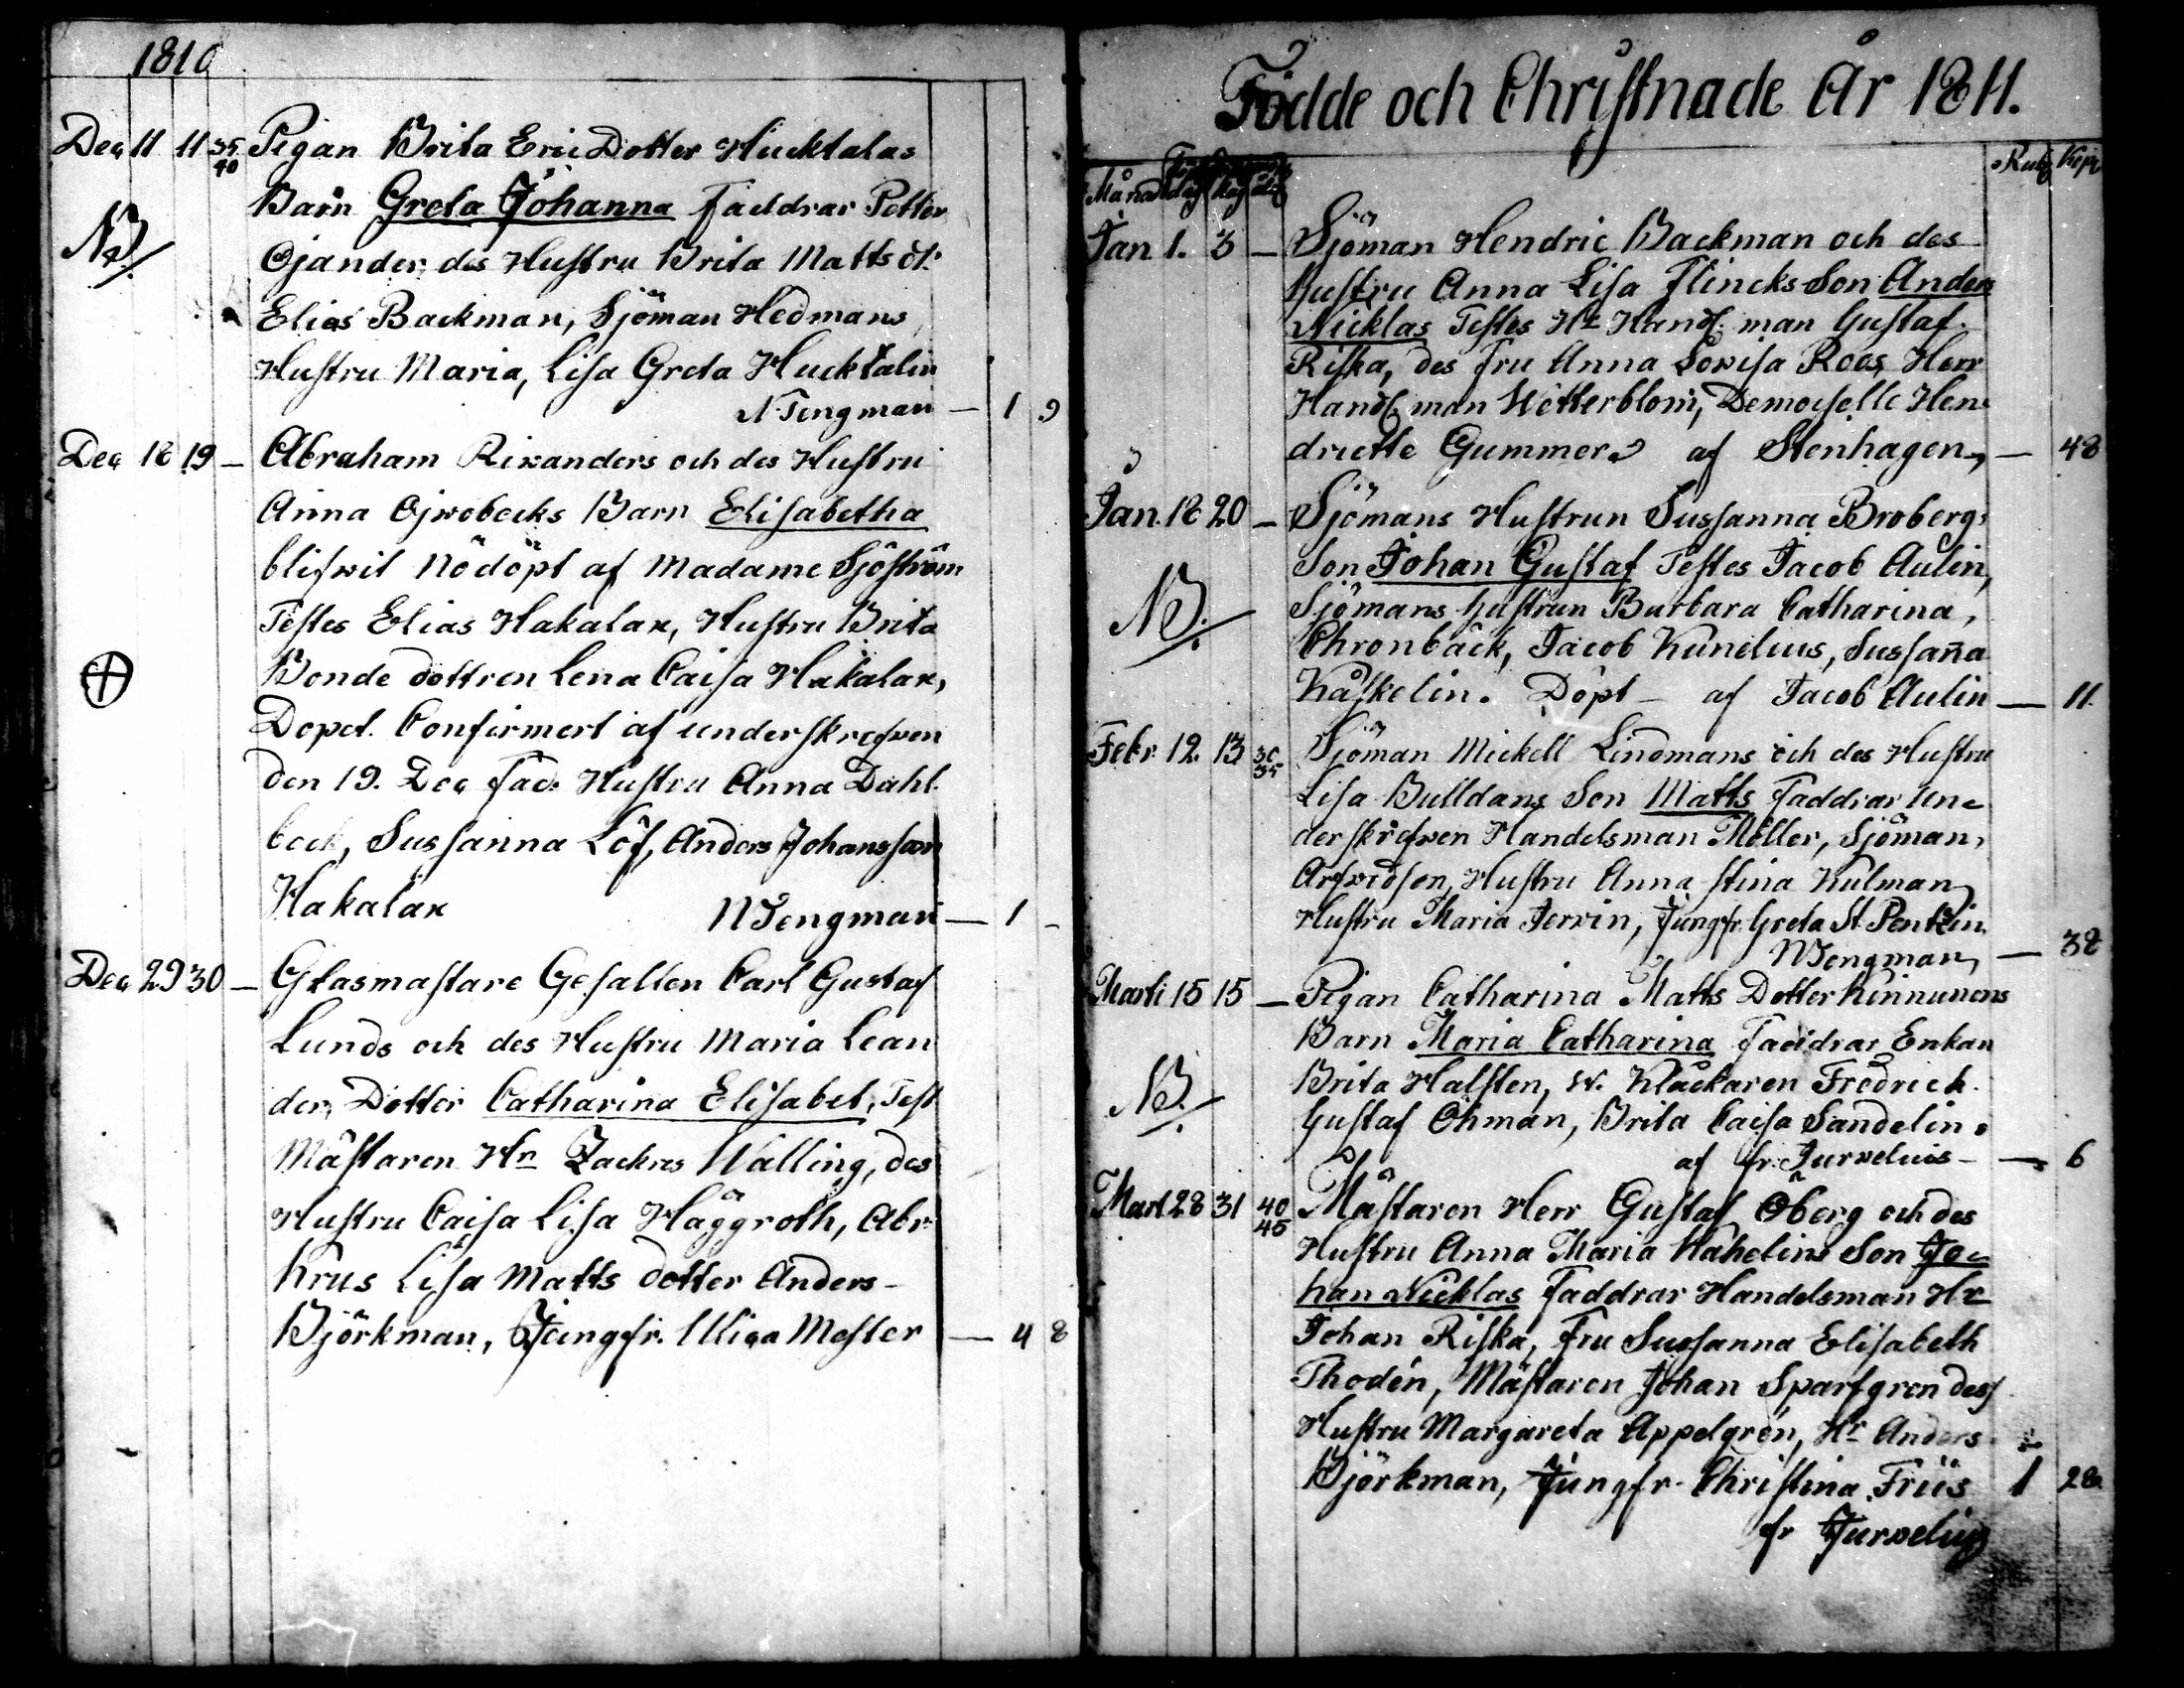 1810
Dec 11 11 35/40 Pigan Brita Eric Dotter Hucktalas
Barn Greta Johanna Faddrar Petter
NB. Ojander des Hustru Brita Matts dr:
Elias Backman, Sjöman Hedmans
Hustru Maria, Lisa Greta Hucktalin
N Tengman — 1 9
Dec 18 19 — Abraham Rivanders och des Hustru
Anna Ojwobecks Barn Elisabetha
blifwit Nödöpt af Madame Sjöström
Testes Elias Hakalax, Hustru Brita
Bonde dottren Lena Caisa Hakalax,
Dopet. Confirmert af underskrefwen
den 19. Dec fad. Hustru Anna Dahl
beck, Sussanna Löf, Anders Johansson
Hakalax N Tengman — 1 -
Dec 29 30 — Glasmastare Gesallen Carl Gustaf
Lunds och des Hustru Maria Lean
der, Dotter Catharina Elisabet, Test
Mästaren Hn Zackres Walling, des
Hustru Caisa Lisa Häggroth, Abr.
Krus Lisa Matts dotter Anders
Björkman, Jungfr. Ulica Mester — 4 8
Födde och Christnade År 1811.
Månad dag dag Rub Kop
Jan 1. 3 — Sjöman Hendric Backman och des
Hustru Anna Lisa Flincks Son Anders
Nicklas Testes Hr Handl. man Gustaf
Riska, des fru Anna Lovisa Roos, Herr
Handl. man Wetterblom, Demoiselle Hen
driette Gummer af Stenhagen, — 48
Jan. 18 20 — Sjömans Hustrun Sussanna Brobergs
Son Johan Gustaf Testes Jacob Aulin,
NB. Sjömans hustrun Barbara Catharina,
Chronbäck, Jacob Kunelius, Sussanna
Kåskelin. Döpt — af Jacob Aulin — 11.
Febr. 12. 13 30/35 Sjöman Mickell Lindmans och des Hustru
Lisa Bulldans Son Matts Faddrar Un
derskrefwen Handelsman Möller, Sjöman,
Arfwedson, Hustru Anna Stina Kulman
Hustru Maria Jervin, Jungfr Greta St. Pentzin
N Tengman, — 38
Marti 15 15 — Pigan Catharina Matts Dotter Kinnunens
Barn Maria Catharina Faddrar Enkan
NB. Brita Halsten, w. Klackaren Fredrick
Gustaf Öhman, Brita Caisa Sandelin
af fr. Jurvelius — 6
Mart 28 31 40/45 Mästaren Herr Gustaf Öberg och des
Hustru Anna Maria Wahelins Son Jo
han Nicklas Faddrar Handelsman Hr
Johan Riska, Fru Sussanna Elisabeth
Thodén, Mästaren Johan Sparfgren dess
Hustru Margareta Appelgrén, Hr Anders
Björkman, Jungfr. Christina Friis 1 28
fr Jurvelius